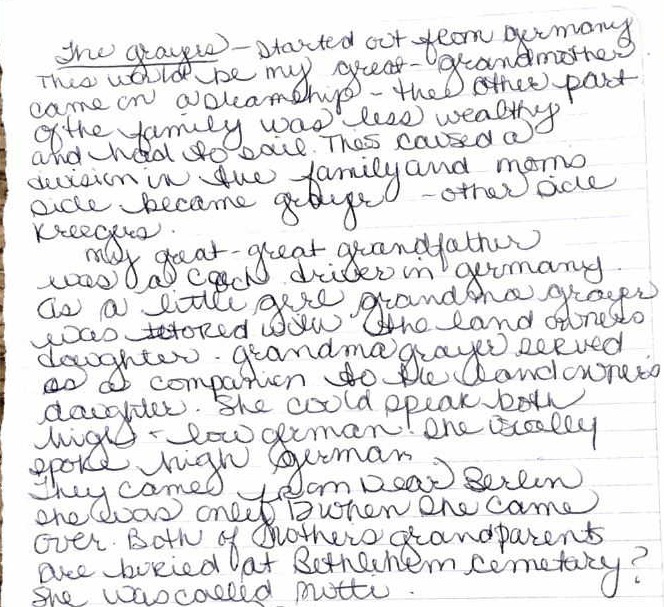 The grayers - started out from germany
This would be my great-grandmother
came on a steamship - the other part
of the family was less wealthy
and had to sail. This caused a
division in the family and moms
side became grayer - other side
Kreegers.
My great-great grandfather
was a coach driver in germany.
As a little girl grandma grayer
was tutored with the land owners
daughter. grandma grayer served
as a companion to the landowners
daughter. She could speak both
high - low german. She usually
spoke high german.
They came from near Berlin
she was only when she came
over. Both of Mothers grandparents
are buried at Bethlehem cemetary?
She was called Mutti.